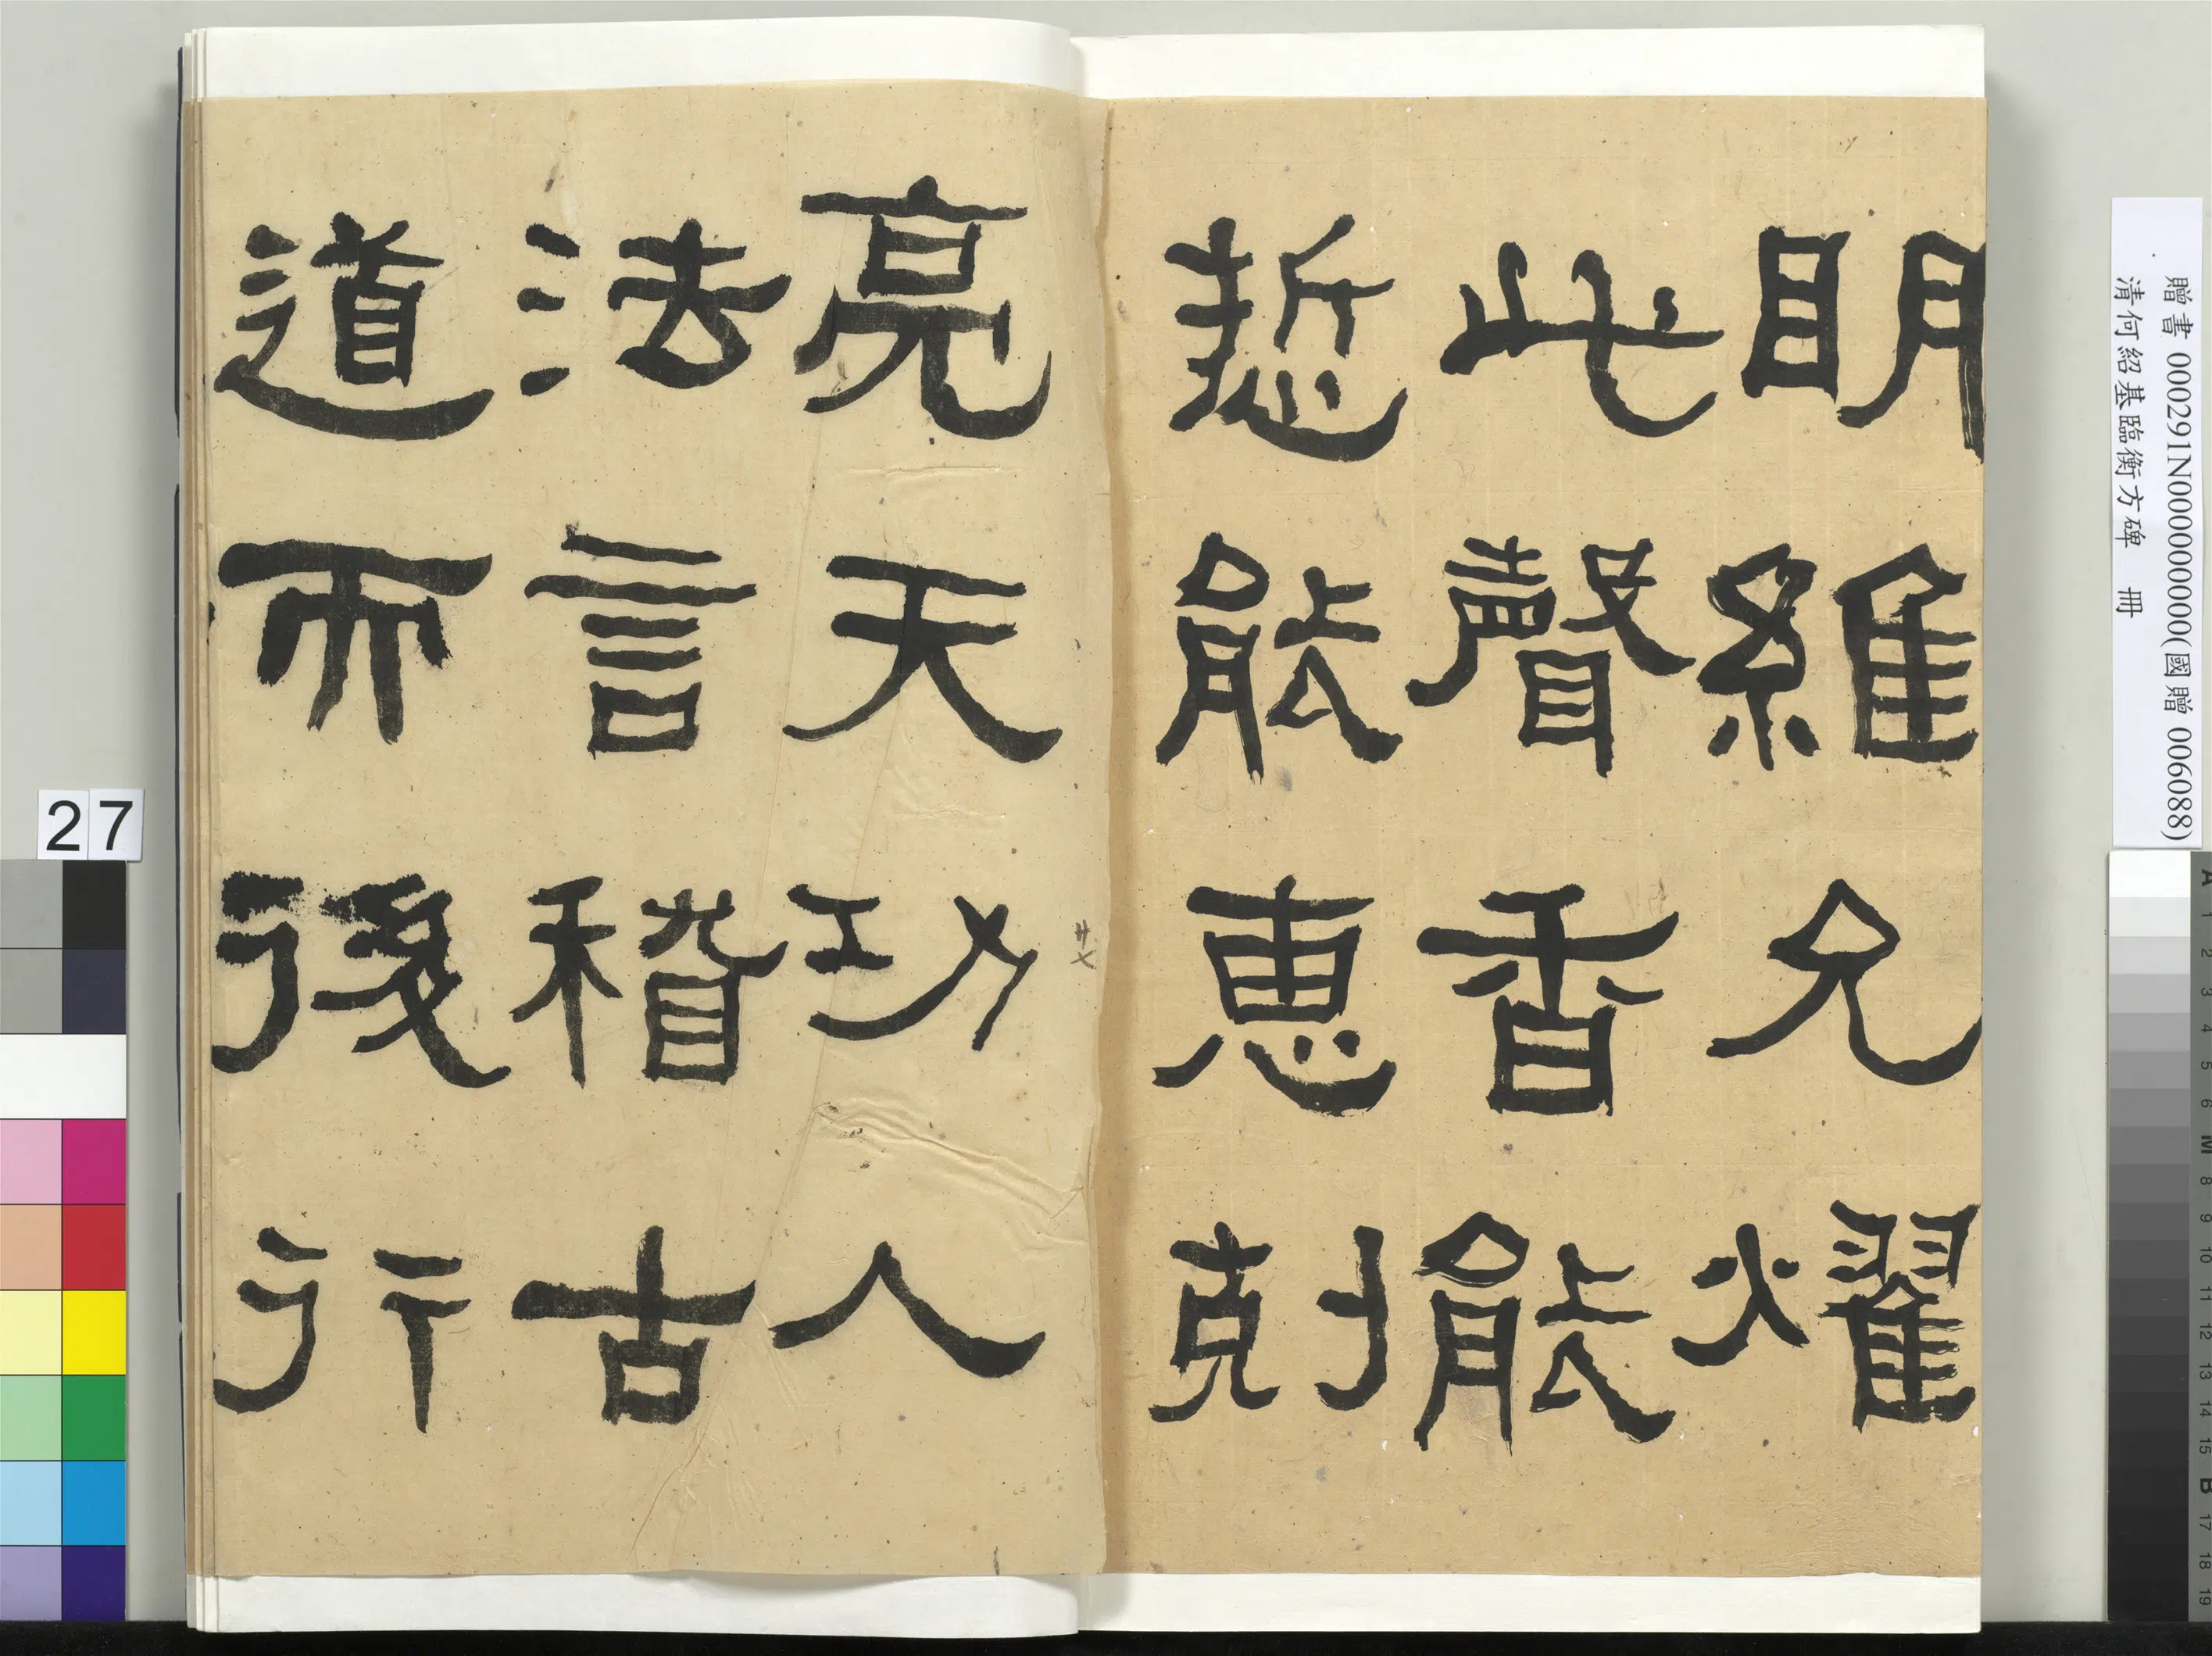 明維允燿
此聲香能
悊能惠剋
亮天功人
法言稽古
道而後行
廿七
27
贈書 000291N000000000(國贈 006088)
清何紹基臨衡方碑 冊
A 1 2 3 4 5 6 M 8 9 10 11 12 13 14 15 B 17 18 19